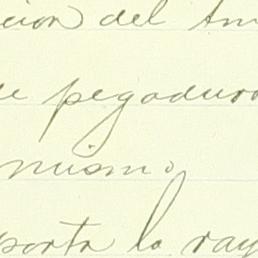 cion del
de pegadura
mismo
porta la ray